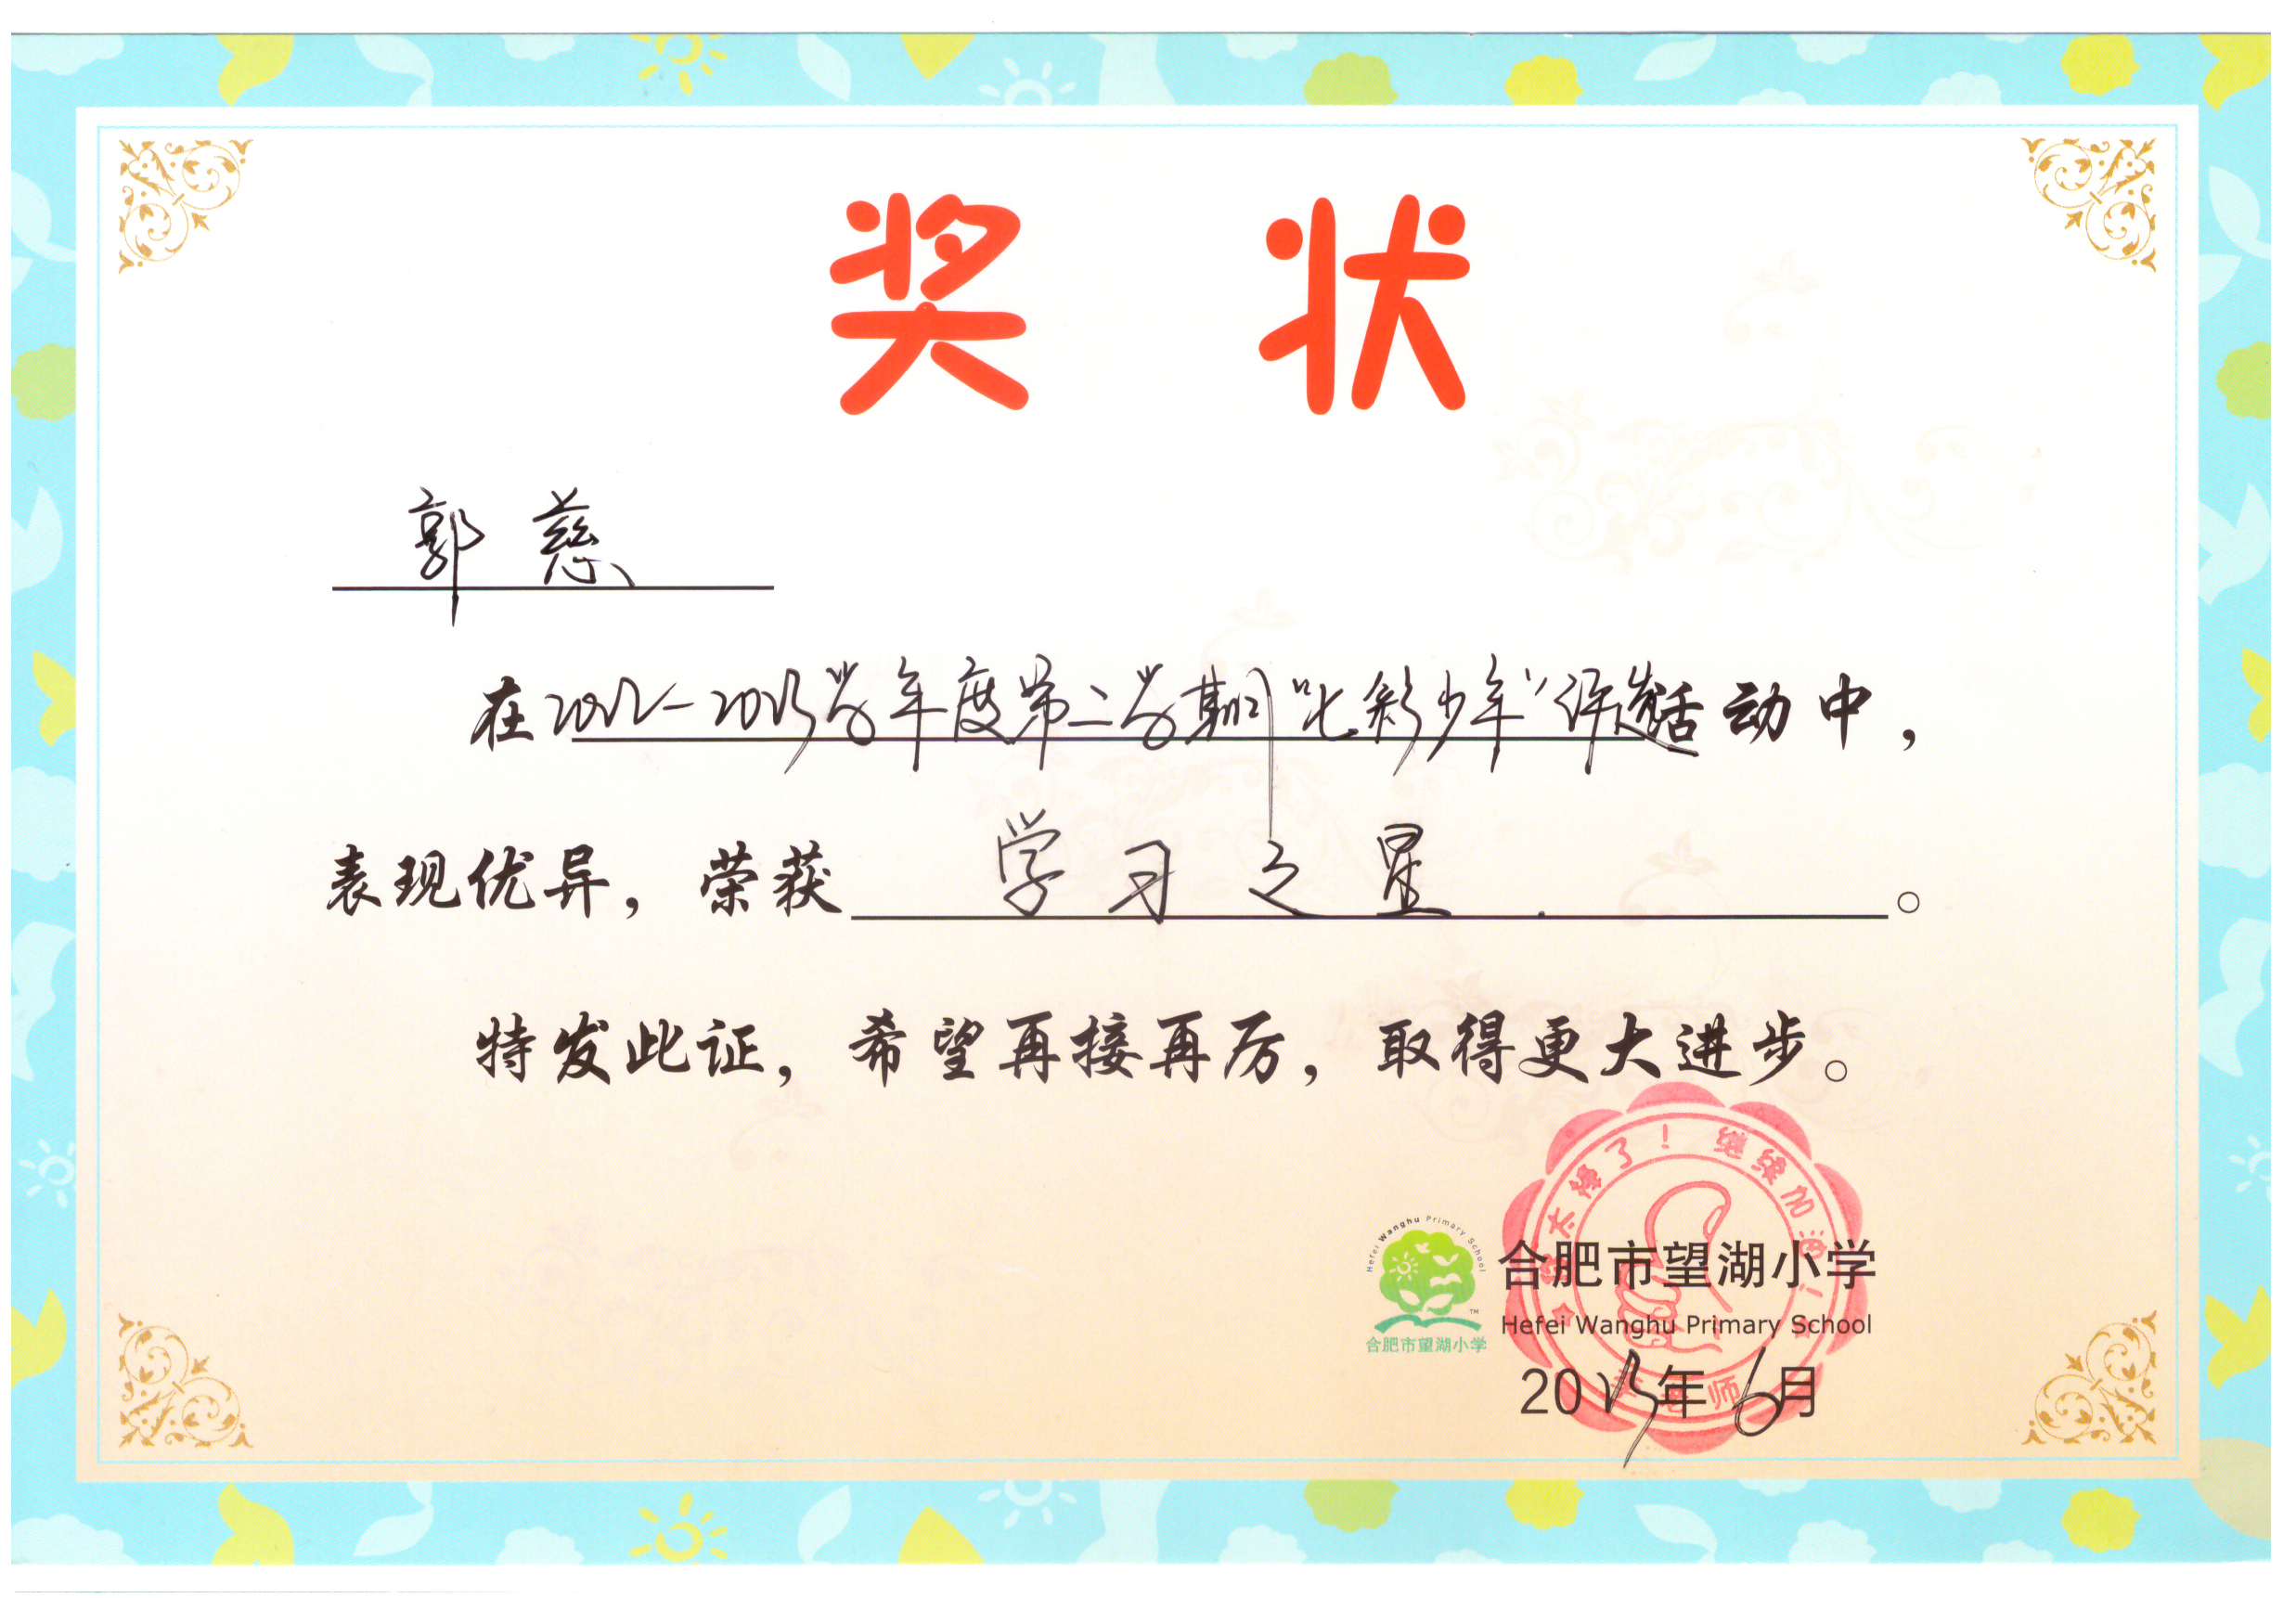 奖 状
郭 慈
在2022-2023学年度第二学期"七彩少年"评选活动中，
表现优异，荣获 学习之星 。
特发此证，希望再接再厉，取得更大进步。
太棒了！继续加油！
Hefei Wanghu Primary School
TM
合肥市望湖小学
合肥市望湖小学
Hefei Wanghu Primary School
老师
2023年6月